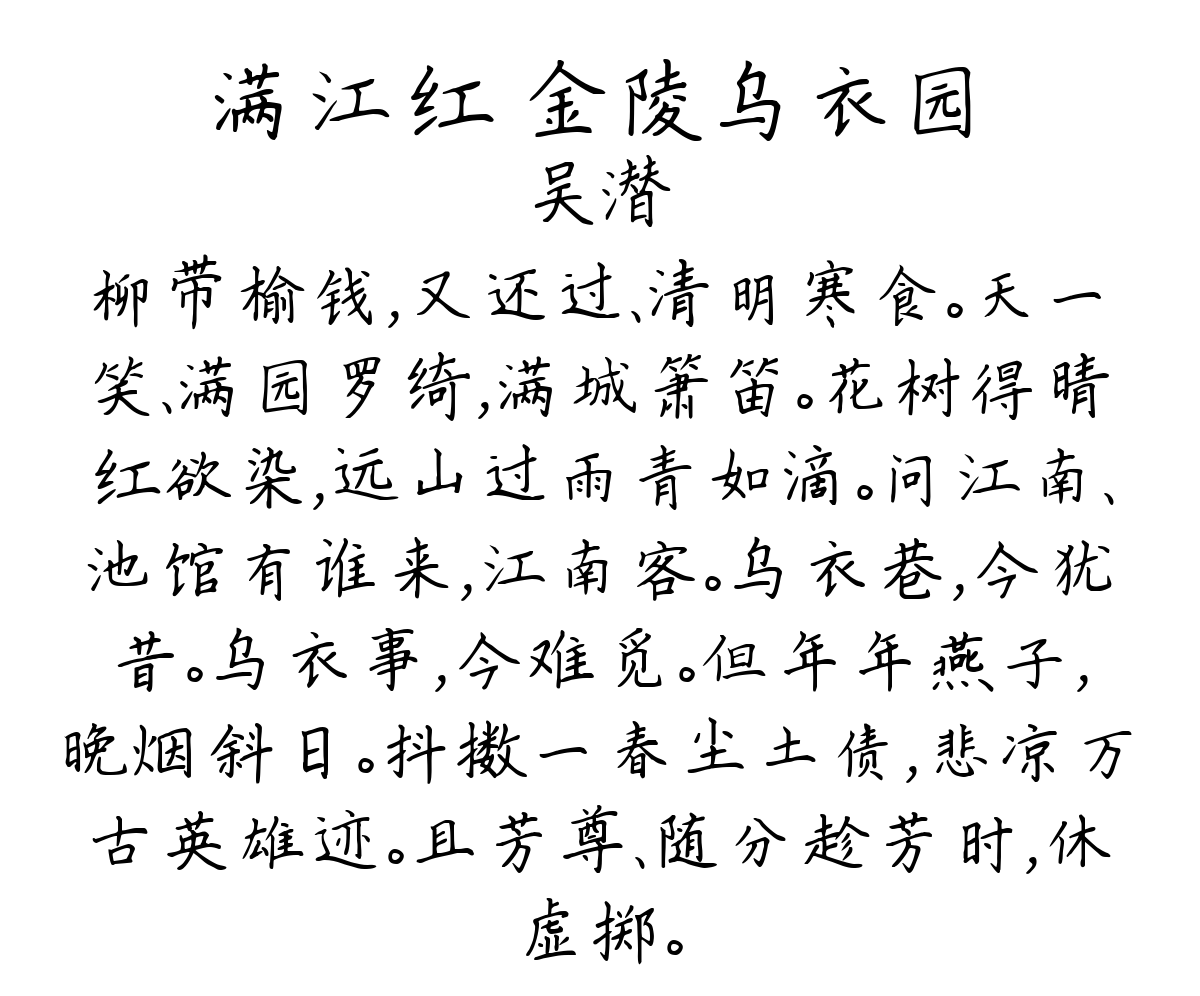 满江红 金陵乌衣园
吴潜
柳带榆钱,又还过、清明寒食。天一
笑、满园罗绮,满城箫笛。花树得晴
红欲染,远山过雨青如滴。问江南、
池馆有谁来,江南客。乌衣巷,今犹
昔。乌衣事,今难觅。但年年燕子,
晚烟斜日。抖擞一春尘土债,悲凉万
古英雄迹。且芳尊、随分趁芳时,休
虚掷。